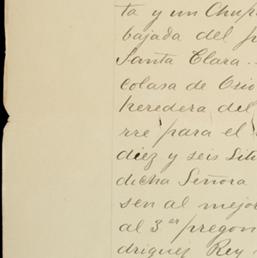 ta y un Chup
bajada del p
Santa Clara.
colasa de Osio
heredera del
rré para el
diez y seis Sit
dicha Señora
sen al mejor
al 3er pregon
driguez Rey